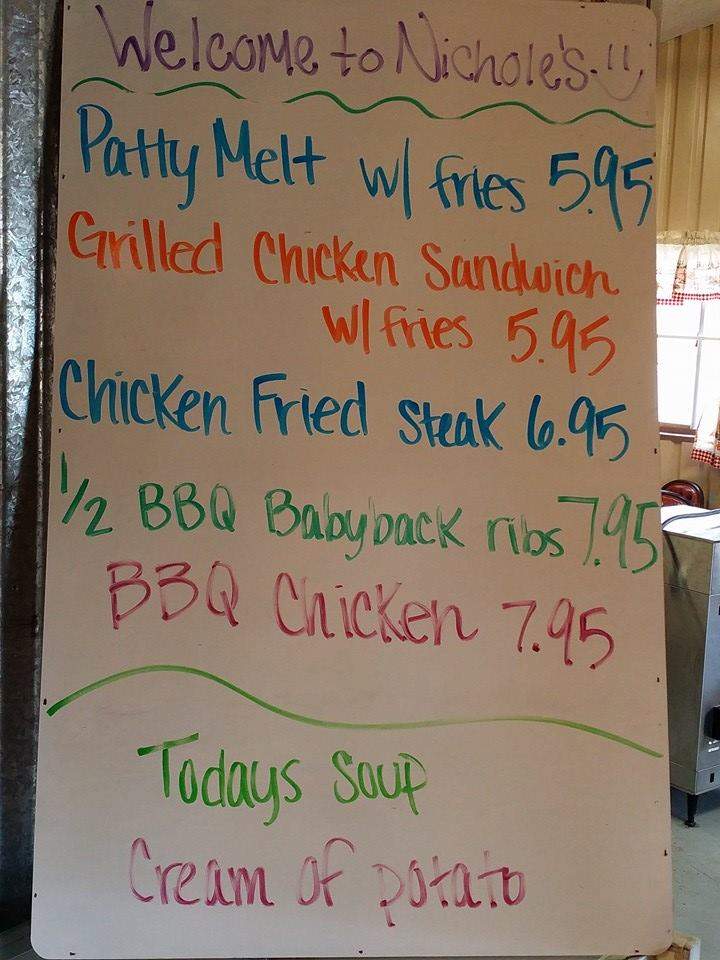 Welcome to Nichole's.!!
Patty Melt w/ fries 5.95
Grilled Chicken Sandwich
w/ fries 5.95
Chicken Fried Steak 6.95
1/2 BBQ Babyback ribs 7.95
BBQ Chicken 7.95
Todays Soup
Cream of potato